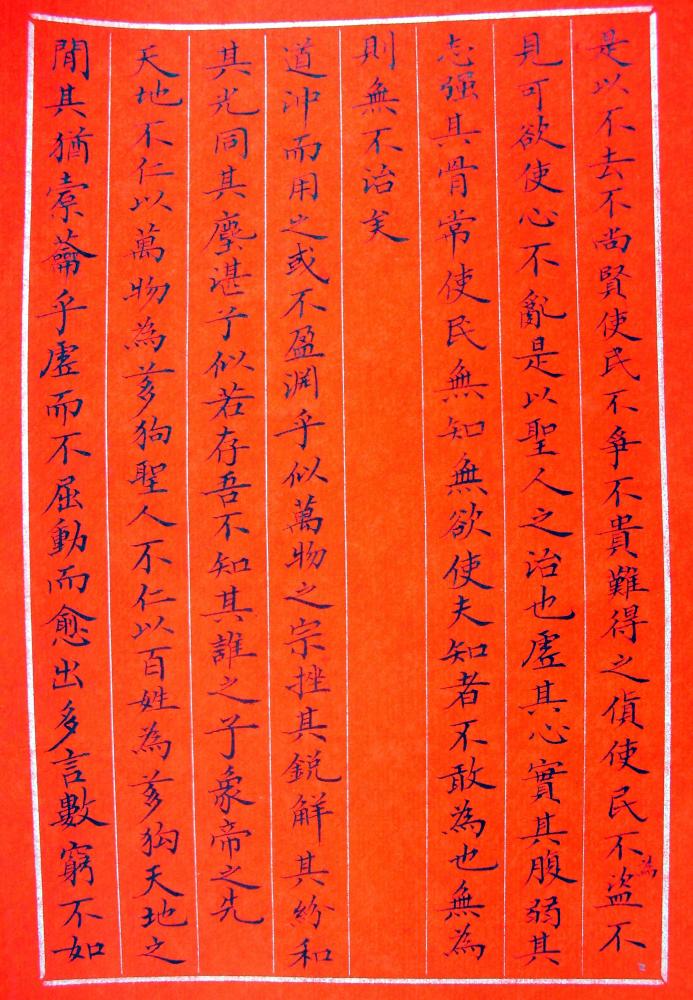 是以不去不尚賢使民不爭不貴難得之貨使民不為盜不
見可欲使心不亂是以聖人之治也虛其心實其腹弱其
志强其骨常使民無知無欲使夫知者不敢為也無為
則無不治矣
道冲而用之或不盈淵乎似萬物之宗挫其銳解其紛和
其光同其塵湛兮似若存吾不知其誰之子象帝之先
天地不仁以萬物為芻狗聖人不仁以百姓為芻狗天地之
間其猶橐籥乎虛而不屈動而愈出多言數窮不如